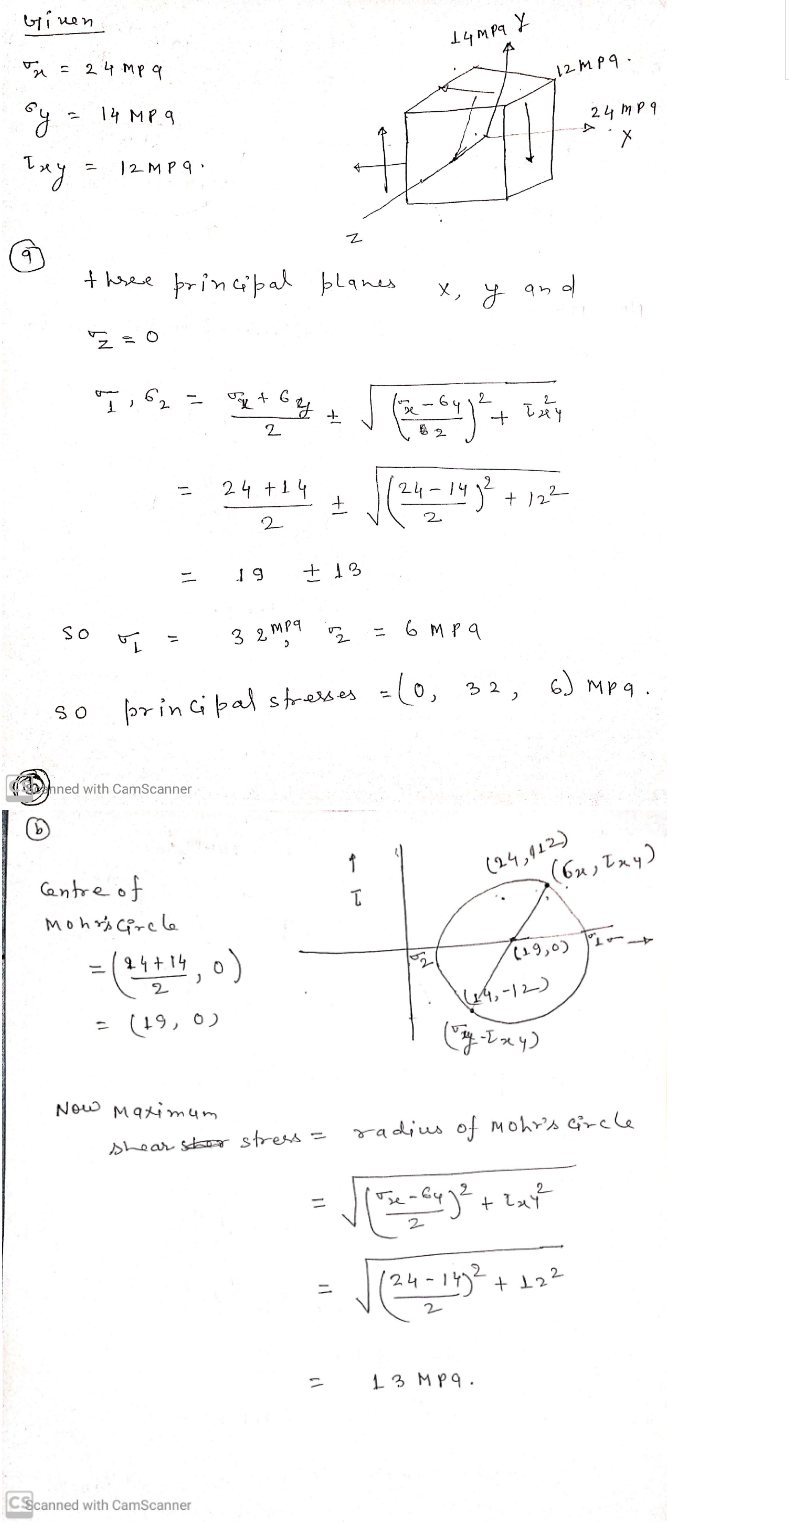 Given
σx = 24 MPa
σy = 14 MPa
τxy = 12 MPa.
14 MPa Y
12 MPa.
24 MPa
X
Z
(a)
three principal planes x, y and
σz = 0
σ1, σ2 = (σx + σy)/2 ± √(((σx - σy)/2)² + τxy²)
= (24 + 14)/2 ± √(((24 - 14)/2)² + 12²)
= 19 ± 13
so σ1 = 32 MPa, σ2 = 6 MPa
so principal stresses = (0, 32, 6) MPa.
Scanned with CamScanner
(b)
Centre of
Mohr's Circle
= ((24+14)/2, 0)
= (19, 0)
↑
τ
(24, 12)
(σx, τxy)
σ2
(19,0)
σ1 σ →
(14,-12)
(σy - τxy)
Now Maximum
shear stress = radius of Mohr's Circle
= √(((σx - σy)/2)² + τxy²)
= √(((24 - 14)/2)² + 12²)
= 13 MPa.
CS Scanned with CamScanner